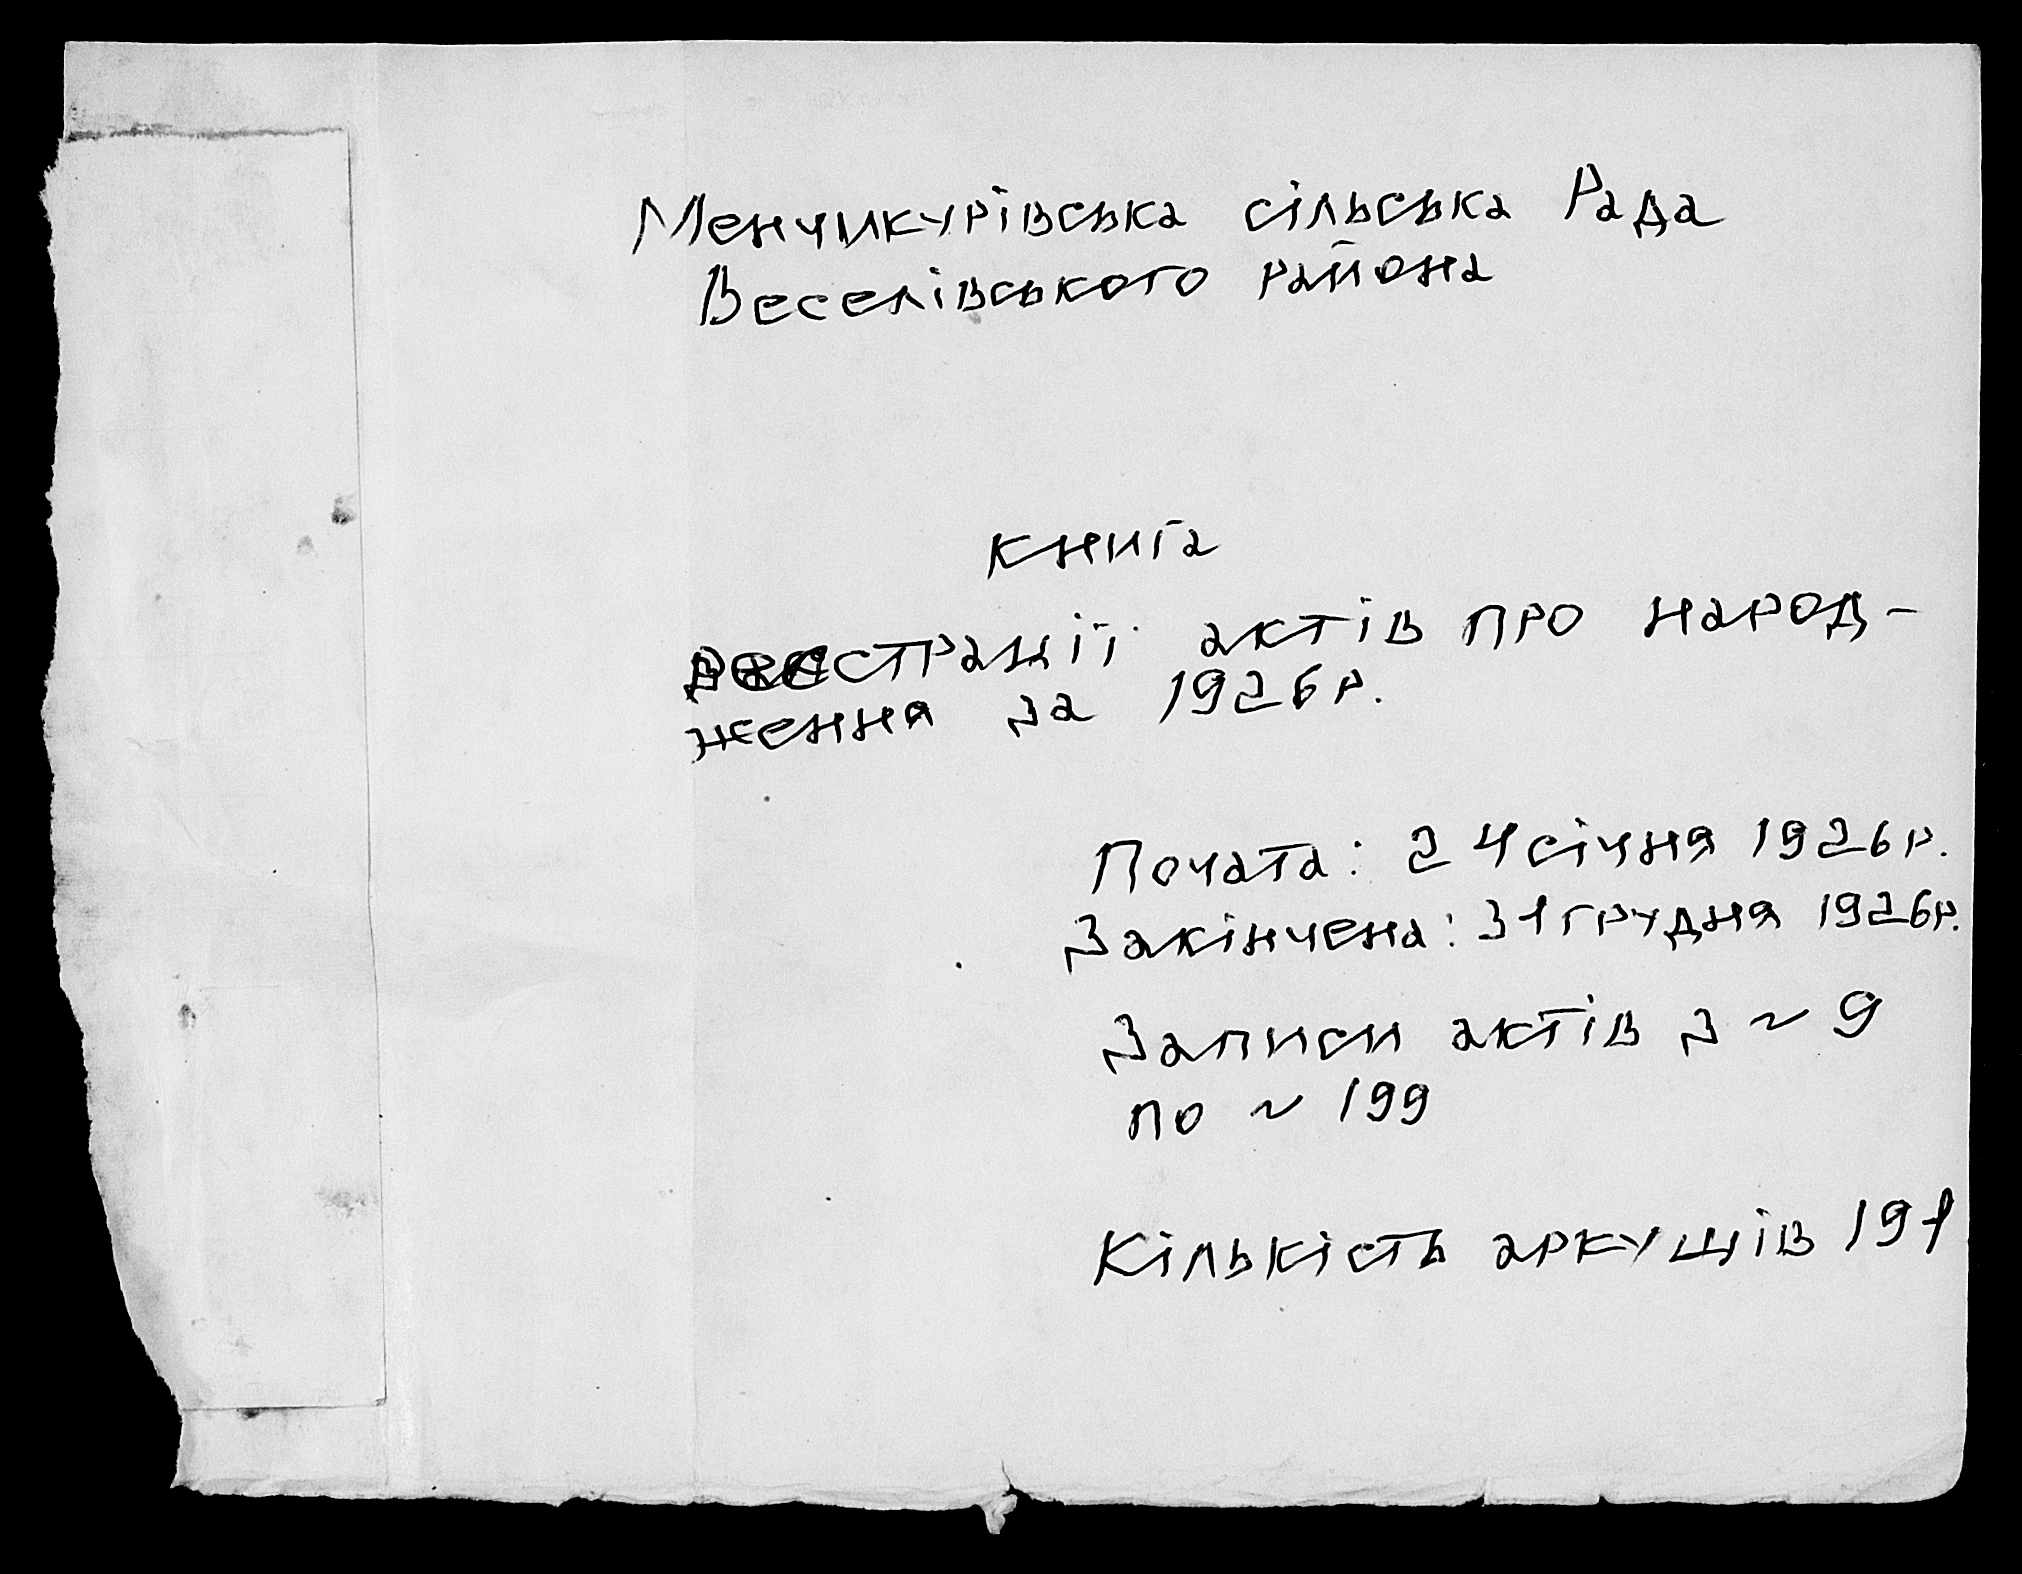 Менчикурівська сільська Рада
Веселівського района
книга
реєстрації актів про народ-
ження за 1926 р.
Почата: 24 січня 1926 р.
Закінчена: 31 грудня 1926 р.
Записи актів з ~ 9
по ~ 199
Кількість аркущів 191